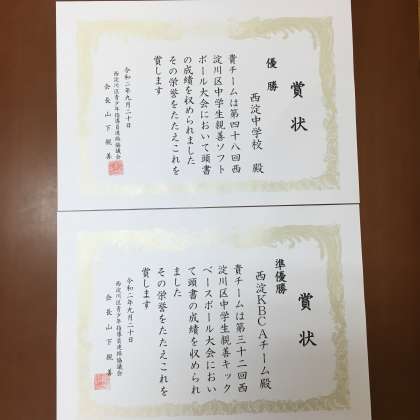 賞状
優勝
西淀中学校 殿
貴チームは第四十八回西
淀川区中学生親善ソフト
ボール大会において頭書
の成績を収められました
その栄誉をたたえこれを
賞します
令和二年九月二十日
西淀川区青少年指導員連絡協議会
会長 山下親善
賞状
準優勝
西淀KBCAチーム殿
貴チームは第三十二回西
淀川区中学生親善キック
ベースボール大会におい
て頭書の成績を収められ
ました
その栄誉をたたえこれを
賞します
令和二年九月二十日
西淀川区青少年指導員連絡協議会
会長 山下親善